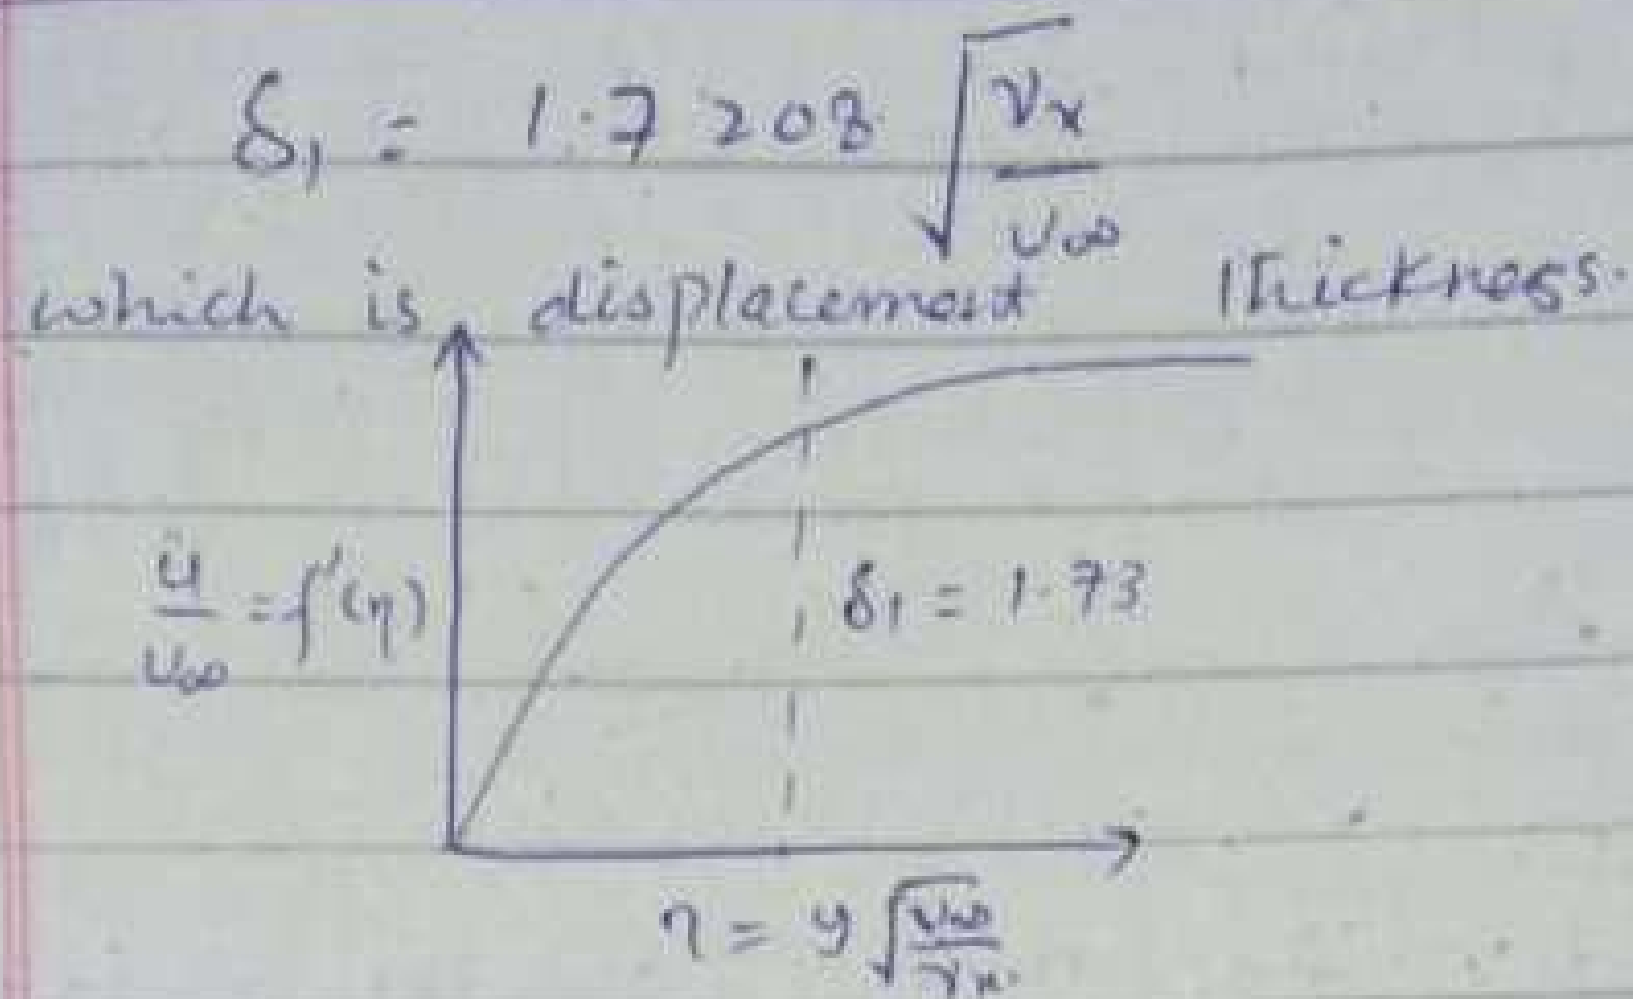 δ₁ = 1.7208 √(νx / U∞)
which is displacement thickness.
u / U∞ = f'(η)
δ₁ = 1.73
η = y √(U∞ / νx)